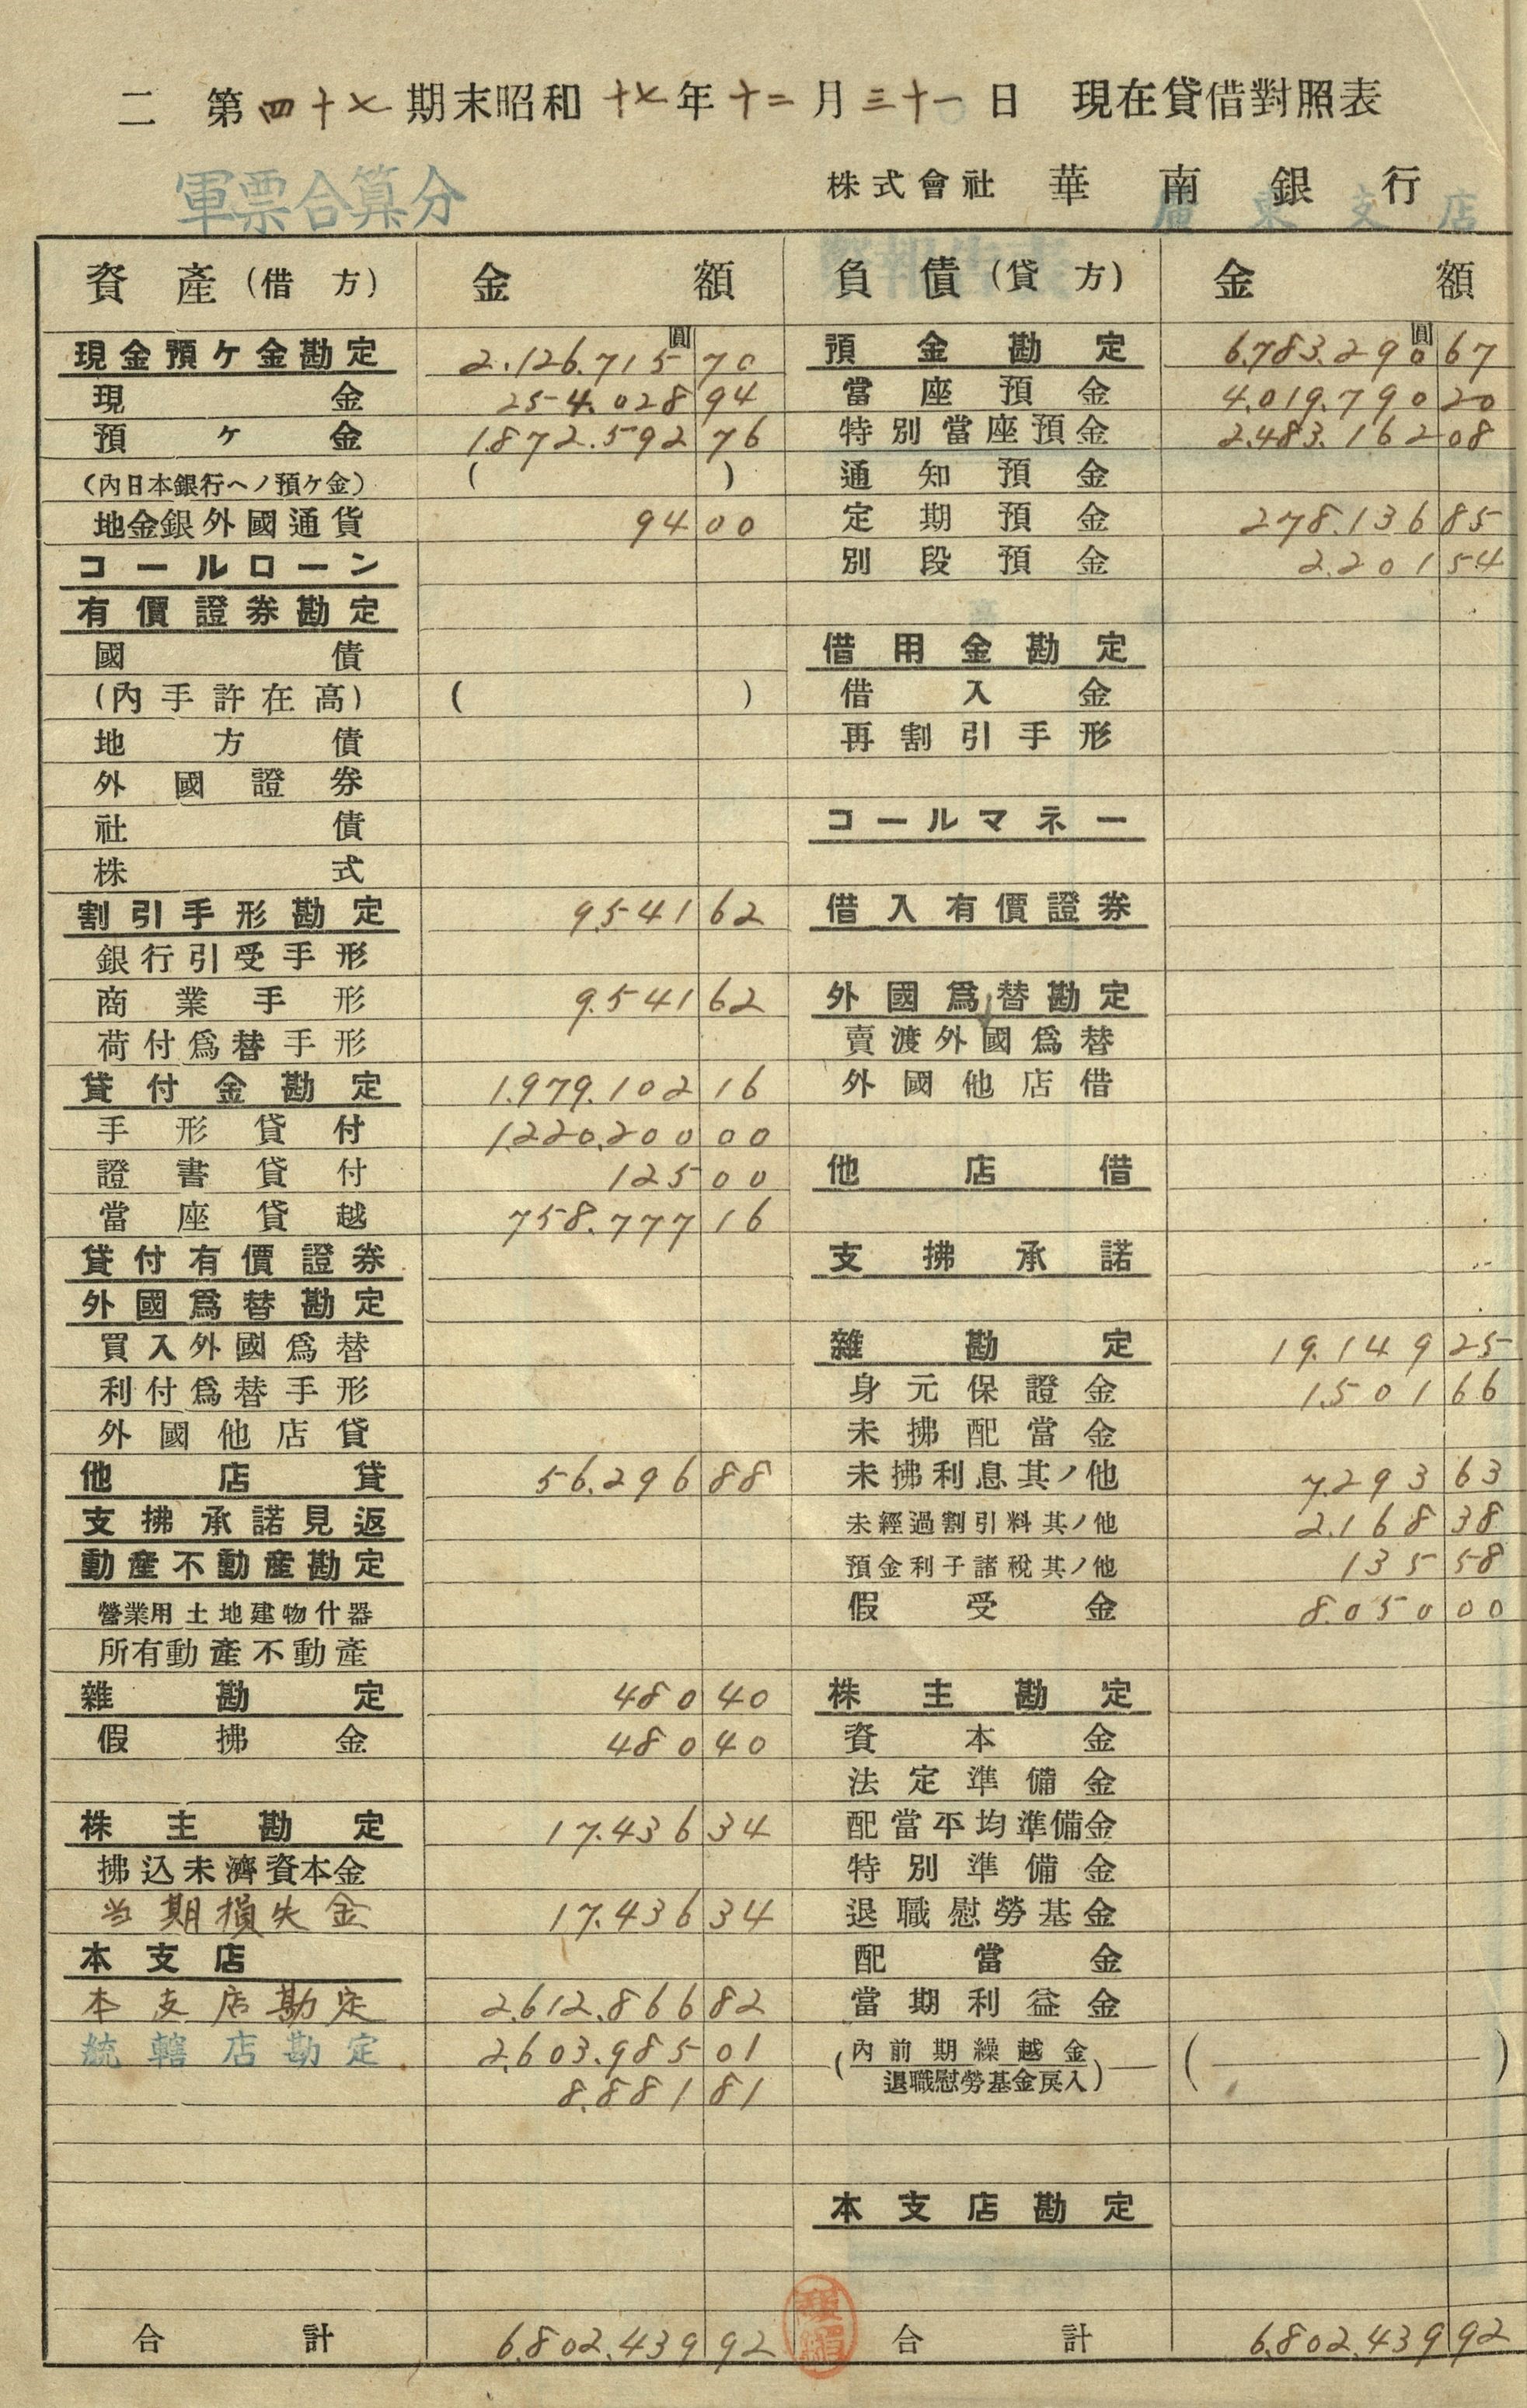 二 第四十七期末昭和十七年十二月三十一日 現在貸借對照表
軍票合算分
株式會社 華南銀行
廣東支店
資産(借方) 金額 負債(貸方) 金額
現金預ケ金勘定 2.126.715 圓 70 預金勘定 6.783.290 圓 67
現金 254.028 94 當座預金 4.019.790 20
預ケ金 1.872.592 76 特別當座預金 2.483.162 08
(內日本銀行ヘノ預ケ金) ( ) 通知預金
地金銀外國通貨 94 00 定期預金 278.136 85
コールローン 別段預金 2.201 54
有價證券勘定
國債 借用金勘定
(內手許在高) ( ) 借入金
地方債 再割引手形
外國證券
社債 コールマネー
株式
割引手形勘定 9.541 62 借入有價證券
銀行引受手形
商業手形 9.541 62 外國爲替勘定
荷付爲替手形 賣渡外國爲替
貸付金勘定 1.979.102 16 外國他店借
手形貸付 1.220.200 00
證書貸付 125 00 他店借
當座貸越 758.777 16
貸付有價證券 支拂承諾
外國爲替勘定
買入外國爲替 雜勘定 19.149 25
利付爲替手形 身元保證金 1.501 66
外國他店貸 未拂配當金
他店貸 56.296 88 未拂利息其ノ他 7.293 63
支拂承諾見返 未經過割引料其ノ他 2.168 38
動産不動産勘定 預金利子諸稅其ノ他 135 58
營業用土地建物什器 假受金 8.050 00
所有動産不動産
雜勘定 480 40 株主勘定
假拂金 480 40 資本金
法定準備金
株主勘定 17.436 34 配當平均準備金
拂込未濟資本金 特別準備金
当期損失金 17.436 34 退職慰勞基金
本支店 配當金
本支店勘定 2.612.866 82 當期利益金
統轄店勘定 2.603.985 01 (內前期繰越金 退職慰勞基金戾入) ( )
8.881 81
本支店勘定
合計 6.802.439 92 合計 6.802.439 92